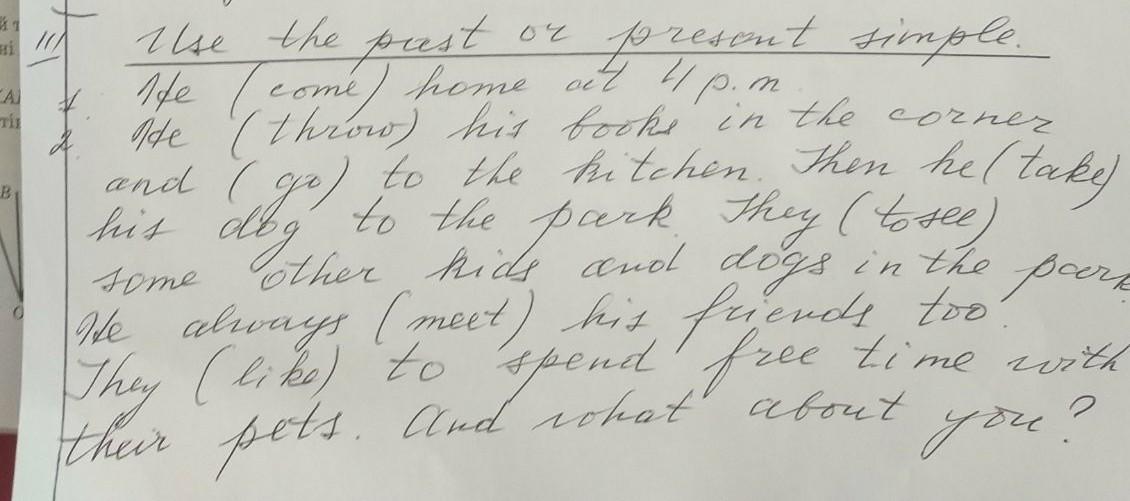 III Use the past or present simple.
1 He (come) home at 4 p.m
2. He (throw) his books in the corner
and (go) to the kitchen. Then he (take)
his dog to the park. They (to see)
some other kids and dogs in the park
He always (meet) his friends too.
They (like) to spend free time with
their pets. And what about you?